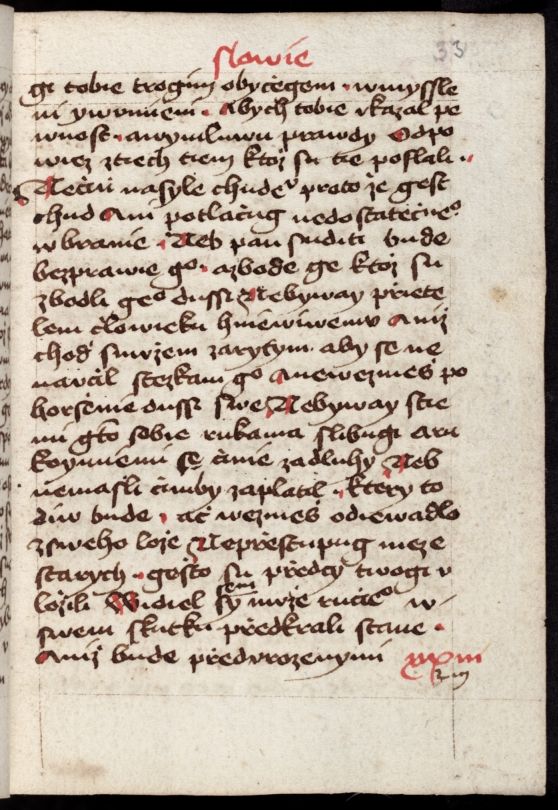 slowie
33
gi tobie trogim obyčegem · wmyssle
ni ywumieni · Abych tobie vkazal pe
wnost · awymluwu prawdy Odpo
wiez ztiech tiem ktoż su tie poslali ·
Nečiń nasyle chudeͦ protože gest
chud Ani potlačug nedostatečneͦ
wbranie · Neb pan suditi bude
bezprawie gͦ · azbode ge ktoż su
zbodli geͦ dussi Nebyway přiete
lem člowieku hniewiwemu Aniž
choď smužem zarytym aby se ne
naučil stezkam gͦ Anewezmeš po
horšenie dussi swe Nebyway stie
mi gto sobie rukama slibugi aru
koymiemi se činie zadluhy Neb
nemasli čimby zaplatil · ktery to
diw bude · ač wezmeš odiewadlo
zsweho lože Nepřestupug meze
starych · gesto su předcy twogi v
ložili Widiel sem muže rucieͦ w
swem skutku předkrali stane ·
Aniž bude předurozenymi xxiii